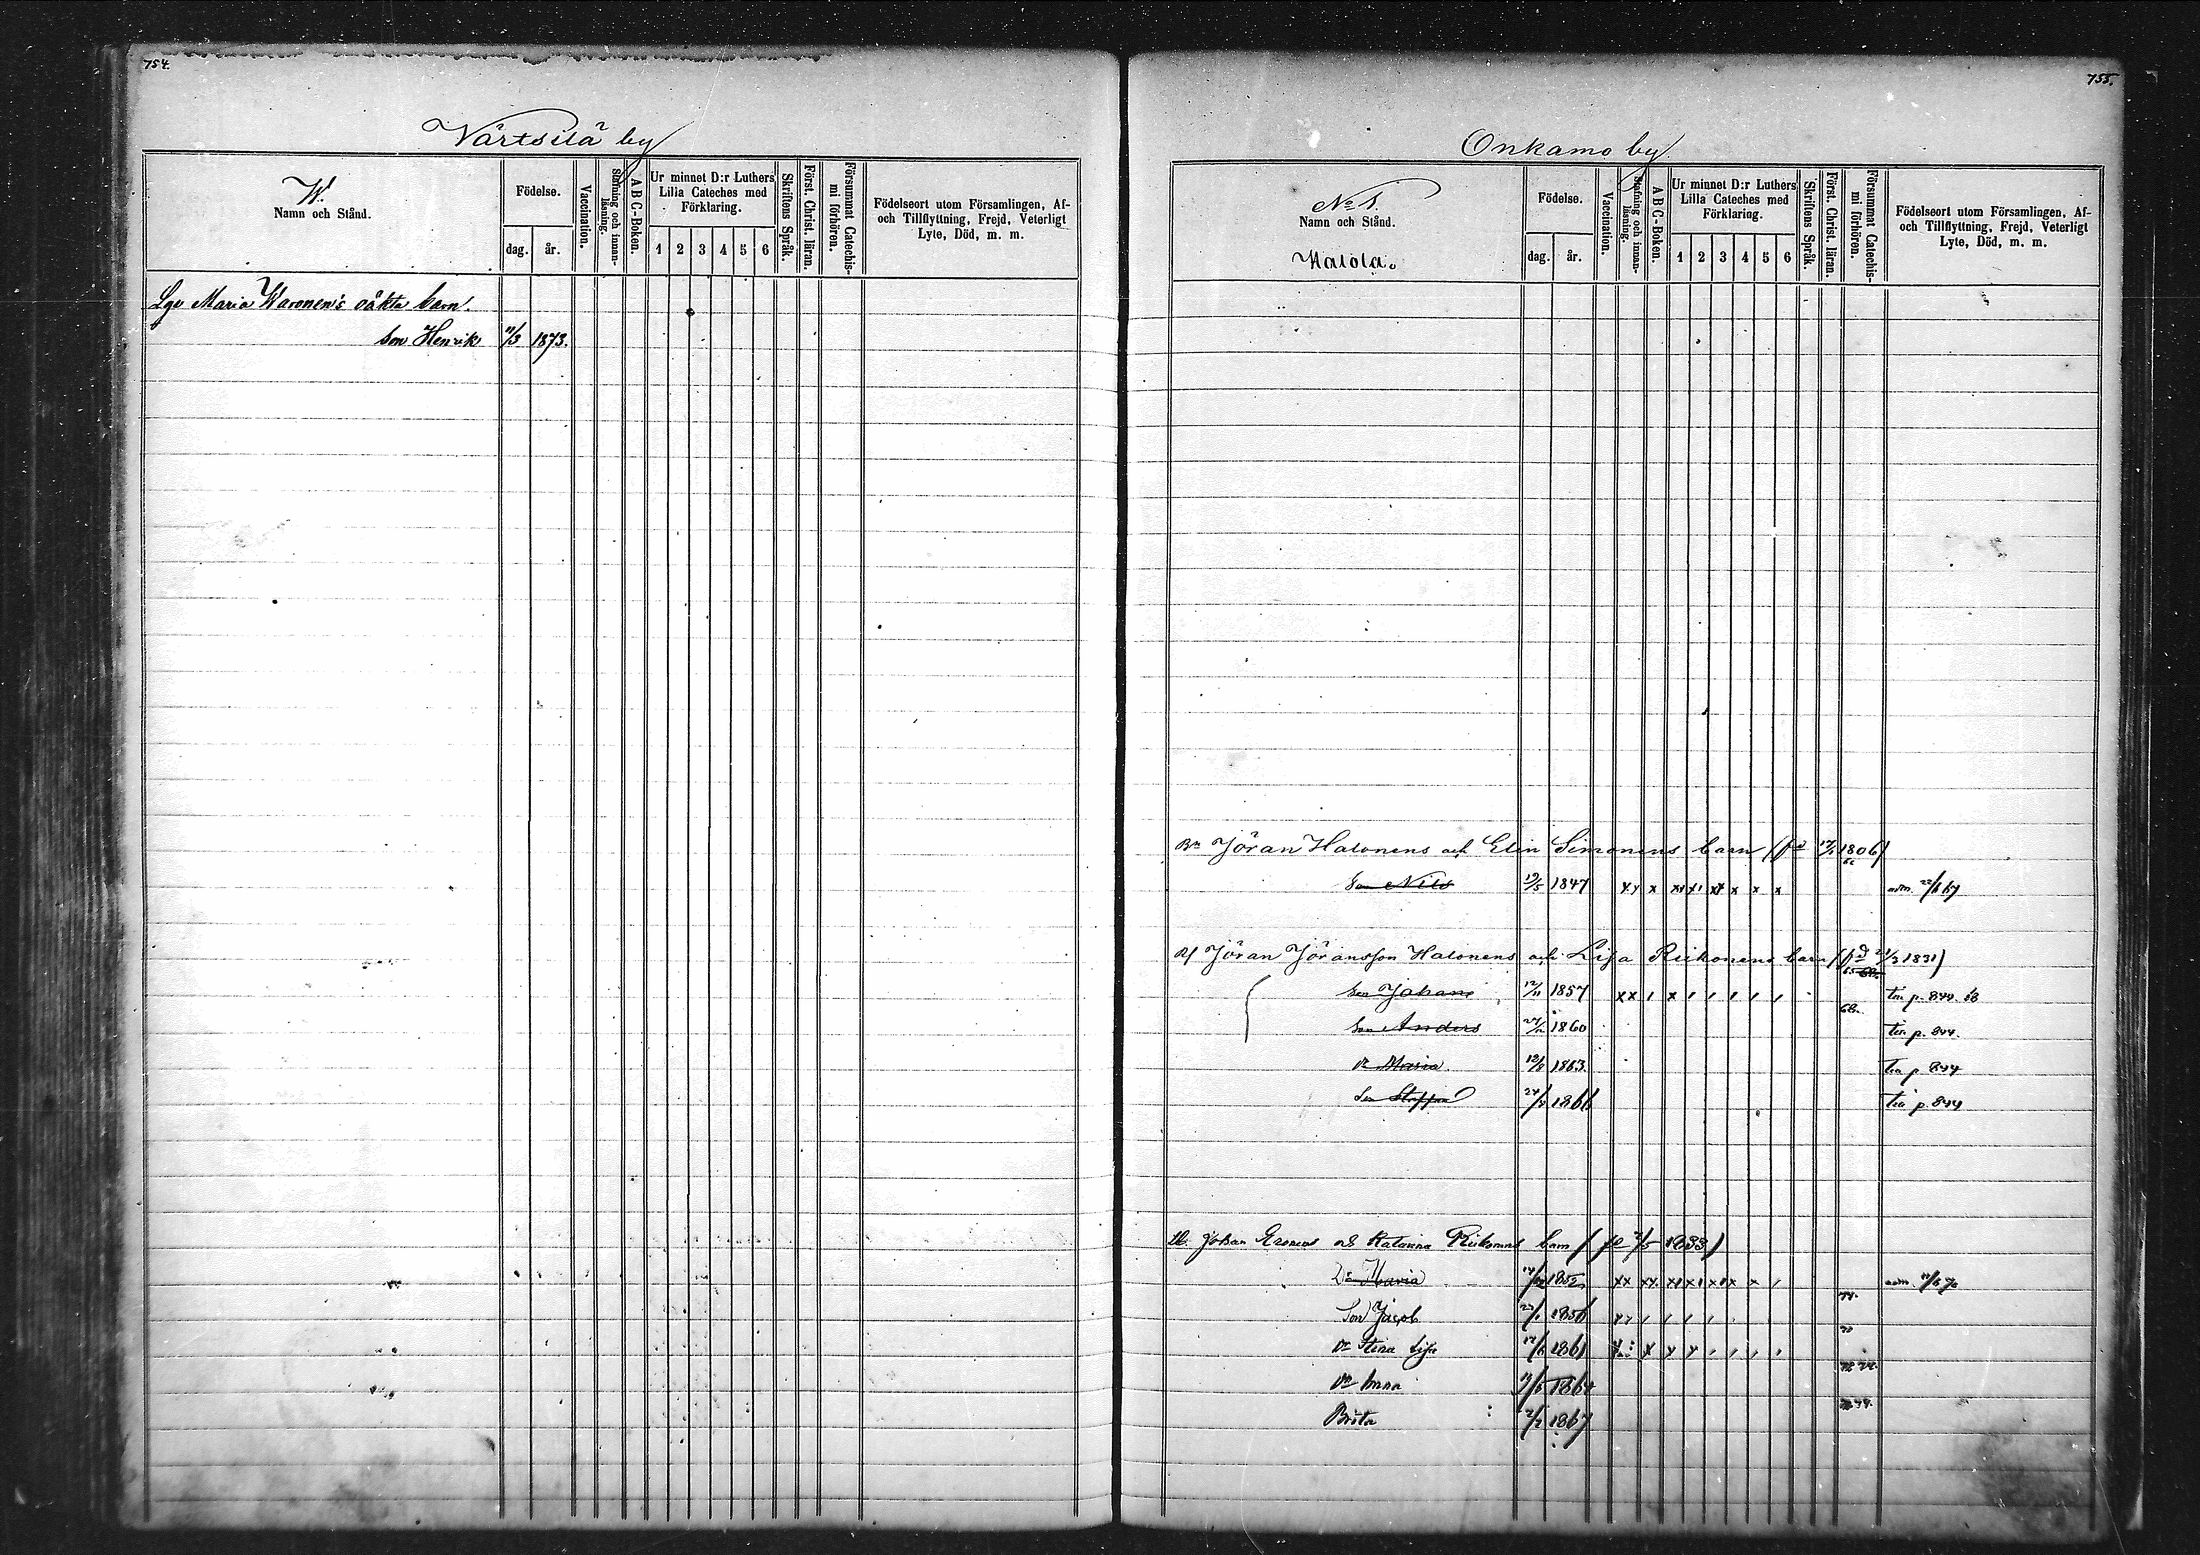 754.
Värtsilä by
W.
Namn och Stånd.
Födelse.
dag. år.
Vaccination.
Stafning och innanläsning.
A B C-Boken.
Ur minnet D:r Luthers Lilla Cateches med Förklaring.
1 2 3 4 5 6
Skriftens Språk.
Först. Christ. läran.
Försummat Catechismi förhören.
Födelseort utom Församlingen, Af- och Tillflyttning, Frejd, Veterligt Lyte, Död, m. m.
Lgv Maria Waronen's oäkta barn.
Son Henrik 11/3 1873.
755.
Onkamo by.
No 1.
Namn och Stånd.
Halola.
Födelse.
dag. år.
Vaccination.
Stafning och innanläsning.
A B C-Boken.
Ur minnet D:r Luthers Lilla Cateches med Förklaring.
1 2 3 4 5 6
Skriftens Språk.
Först. Christ. läran.
Försummat Catechismi förhören.
Födelseort utom Församlingen, Af- och Tillflyttning, Frejd, Veterligt Lyte, Död, m. m.
Bn Jöran Halonens och Elin Simonens barn 1806)
Son Nils 19/5 1847 xx x x x x x adm.
Jöran Jöransson Halonens och Lisa Riikonens barn 1831)
Son Johan 12/11 1857 xx x tra p. 844.
Son Anders 1860 tra p. 844.
Dr Maria 1863. tra p 844
Son Staffan 1866 tra p. 844
Johan Eronens och Katarina Riikonens barn 1833)
Dr Maria 1852 xx xx adm.
Son Jacob 1856
Dr Stina Lisa 1861
Dr Anna 1864
Brita 1867